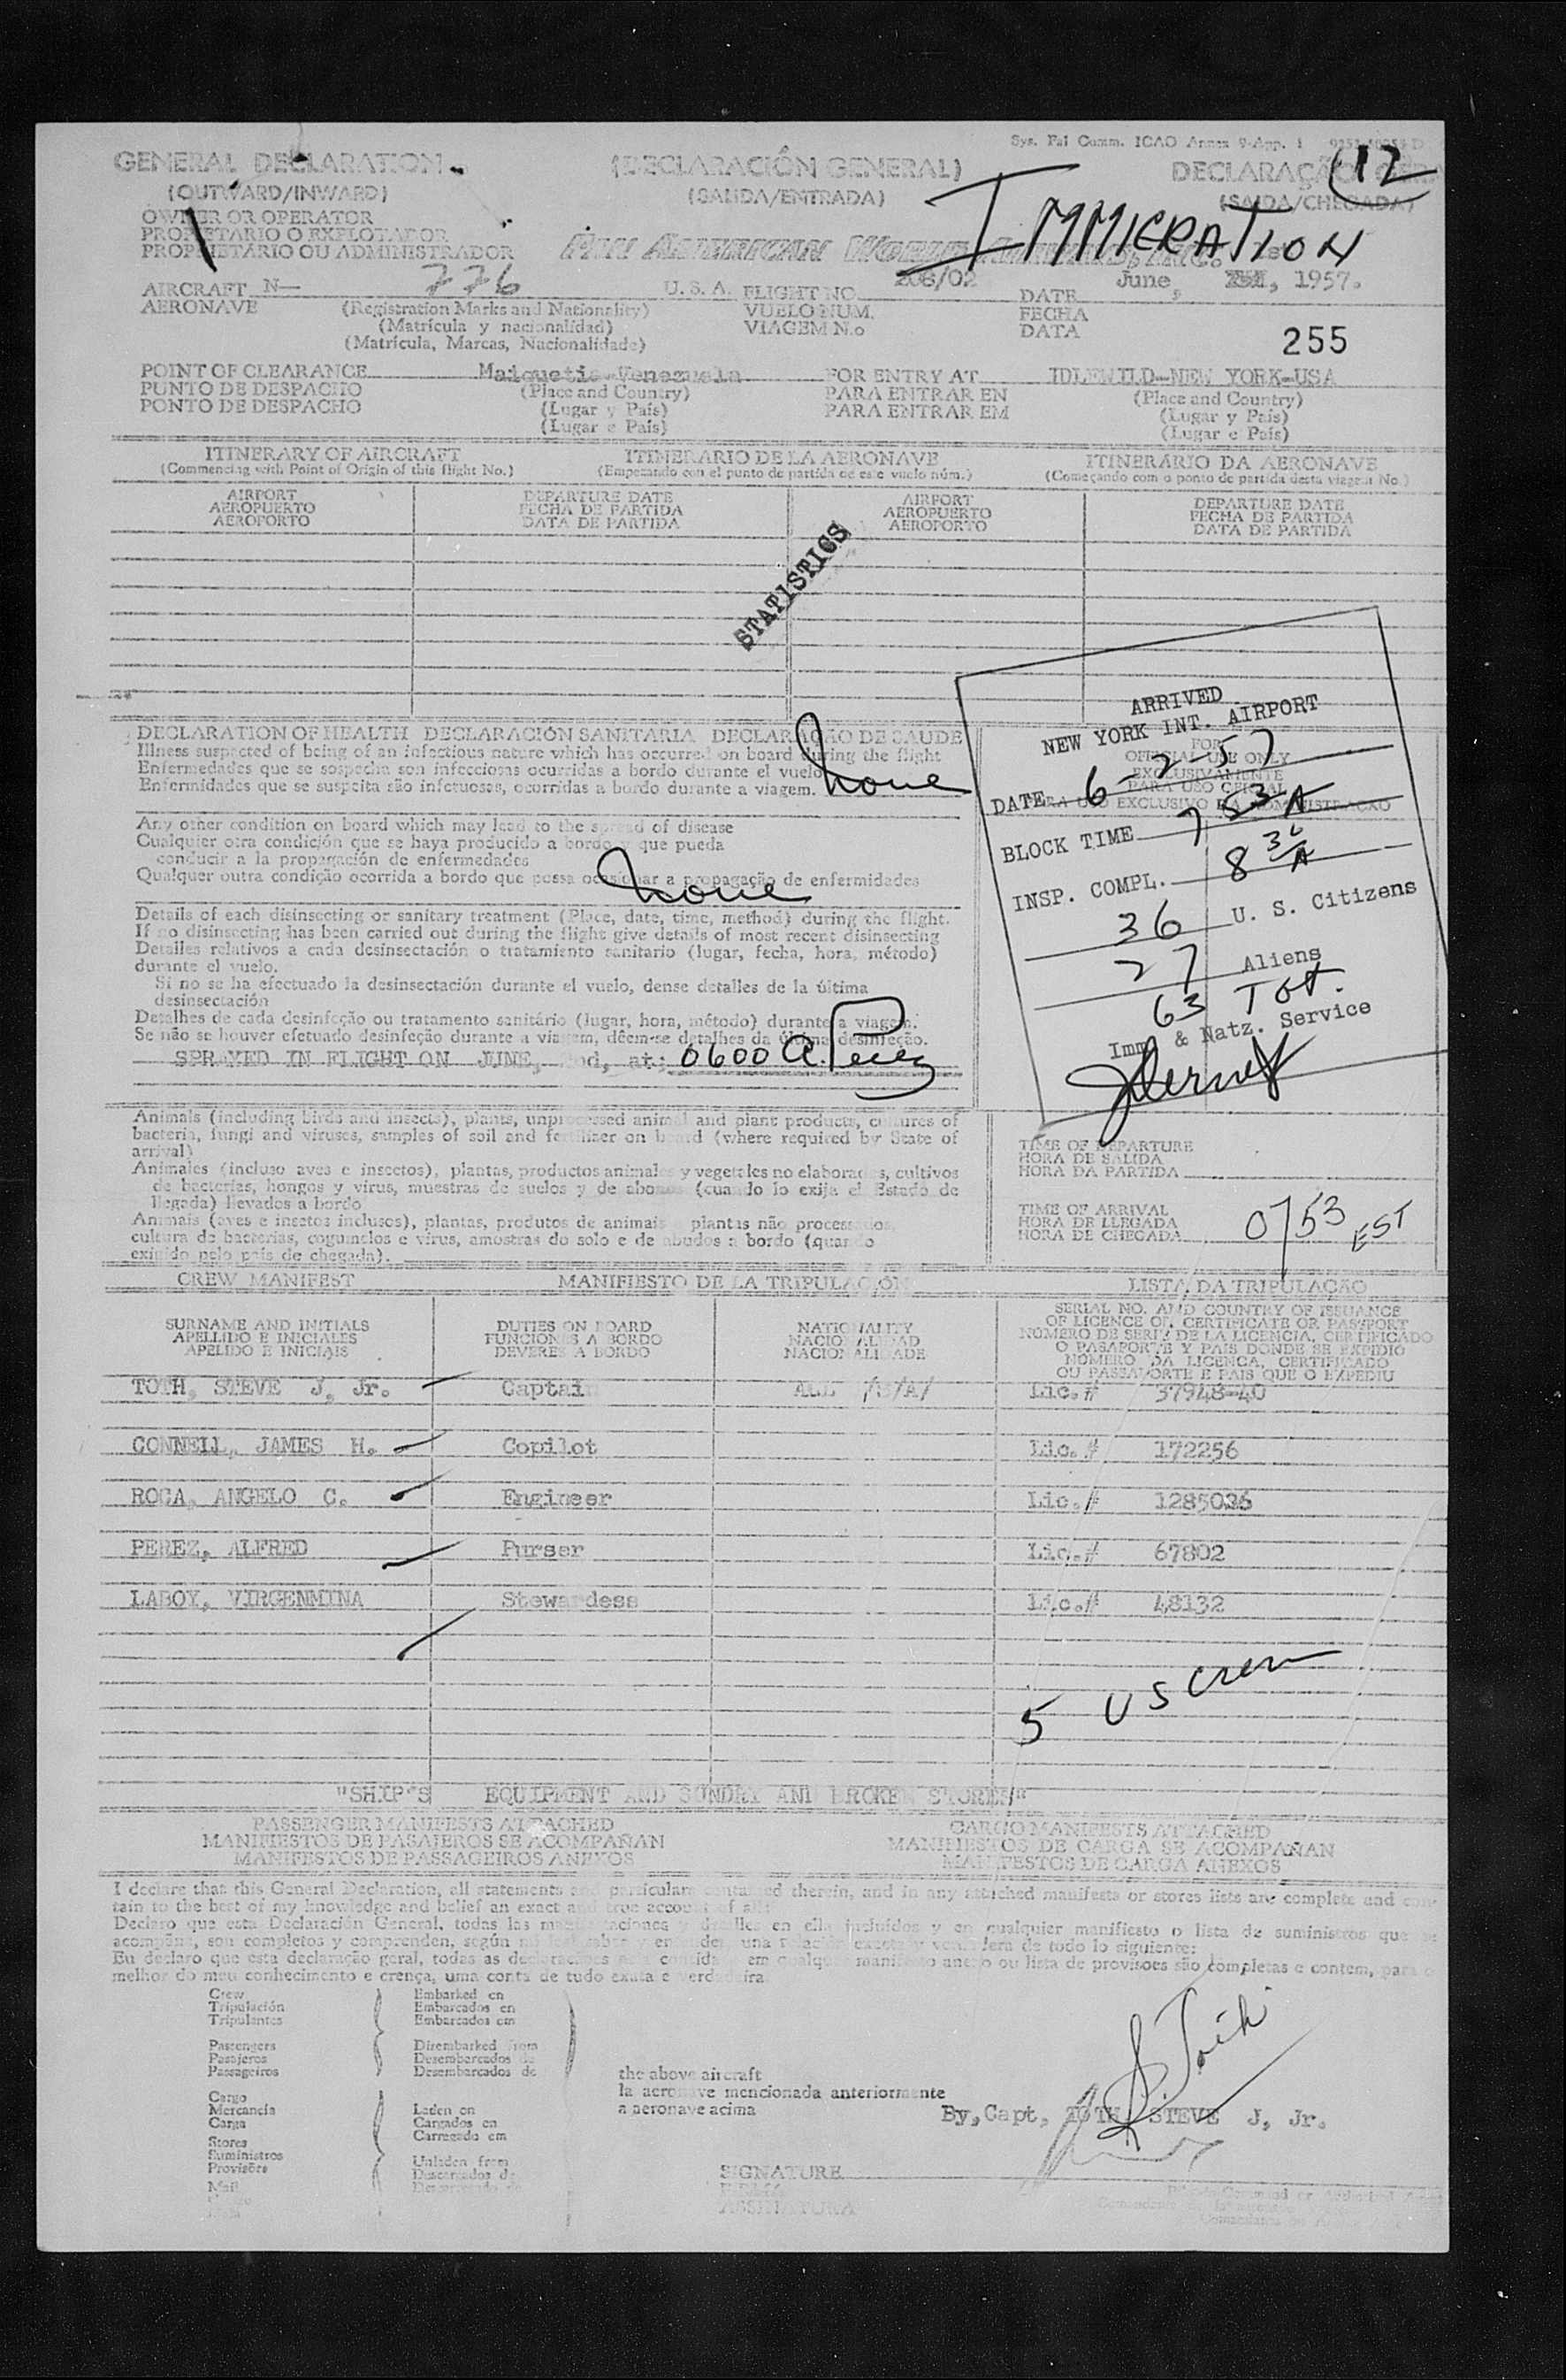 Sys. Fal Comm. ICAO Annex 9-App. 1
GENERAL DECLARATION (DECLARACIÓN GENERAL) DECLARAÇÃO
(OUTWARD/INWARD) (SALIDA/ENTRADA) (SAIDA/CHEGADA)
12
IMMIGRATION
OWNER OR OPERATOR
PROPIETARIO O EXPLOTADOR
PROPRIETÁRIO OU ADMINISTRADOR
PAN AMERICAN WORLD
AIRCRAFT N— 776 U. S. A. FLIGHT NO. 206/02 DATE June, 1957.
AERONAVE (Registration Marks and Nationality) VUELO NUM. FECHA
(Matrícula y nacionalidad) VIAGEM N.o DATA
(Matrícula, Marcas, Nacionalidade)
255
POINT OF CLEARANCE Maiquetia-Venezuela FOR ENTRY AT IDLEWILD-NEW YORK-USA
PUNTO DE DESPACHO (Place and Country) PARA ENTRAR EN (Place and Country)
PONTO DE DESPACHO (Lugar y País) PARA ENTRAR EM (Lugar y País)
(Lugar e País) (Lugar e País)
ITINERARY OF AIRCRAFT ITINERARIO DE LA AERONAVE ITINERÁRIO DA AERONAVE
(Commencing with Point of Origin of this flight No.) (Empezando con el punto de partida de este vuelo núm.) (Começando com o ponto de partida desta viagem No.)
AIRPORT DEPARTURE DATE AIRPORT DEPARTURE DATE
AEROPUERTO FECHA DE PARTIDA AEROPUERTO FECHA DE PARTIDA
AEROPORTO DATA DE PARTIDA AEROPORTO DATA DE PARTIDA
STATISTICS
DECLARATION OF HEALTH DECLARACIÓN SANITARIA DECLARAÇÃO DE SAUDE
Illness suspected of being of an infectious nature which has occurred on board during the flight
Enfermedades que se sospecha son infecciosas ocurridas a bordo durante el vuelo
Enfermidades que se suspeita são infetuosas, ocorridas a bordo durante a viagem. None
Any other condition on board which may lead to the spread of disease
Cualquier otra condición que se haya producido a bordo y que pueda
conducir a la propagación de enfermedades
Qualquer outra condição ocorrida a bordo que possa ocasionar a propagação de enfermidades
None
Details of each disinsecting or sanitary treatment (Place, date, time, method) during the flight.
If no disinsecting has been carried out during the flight give details of most recent disinsecting
Detalles relativos a cada desinsectación o tratamiento sanitario (lugar, fecha, hora, método)
durante el vuelo.
Si no se ha efectuado la desinsectación durante el vuelo, dense detalles de la última
desinsectación
Detalhes de cada desinfeção ou tratamento sanitário (lugar, hora, método) durante a viagem.
Se não se houver efetuado desinfeção durante a viagem, dêem-se detalhes da última desinfeção.
SPRAYED IN FLIGHT ON JUNE, at; 0600 A. Perez
FOR
OFFICIAL USE ONLY
EXCLUSIVAMENTE
PARA USO OFICIAL
PARA USO EXCLUSIVO DA ADMINISTRAÇÃO
ARRIVED
NEW YORK INT. AIRPORT
DATE 6-2-57
BLOCK TIME 7 53 A
INSP. COMPL. 8 36 A
36 U. S. Citizens
27 Aliens
63 Tot.
Imm. & Natz. Service
Animals (including birds and insects), plants, unprocessed animal and plant products, cultures of
bacteria, fungi and viruses, samples of soil and fertilizer on board (where required by State of
arrival)
Animales (incluso aves e insectos), plantas, productos animales y vegetales no elaborados, cultivos
de bacterias, hongos y virus, muestras de suelos y de abonos (cuando lo exija el Estado de
llegada) llevados a bordo
Animais (aves e insetos inclusos), plantas, produtos de animais plantas não processados,
cultura de bacterias, cogumelos e virus, amostras do solo e de abudos a bordo (quando
exigido pelo país de chegada).
TIME OF DEPARTURE
HORA DE SALIDA
HORA DA PARTIDA
TIME OF ARRIVAL
HORA DE LLEGADA
HORA DE CHEGADA 0753 EST
CREW MANIFEST MANIFIESTO DE LA TRIPULACIÓN LISTA DA TRIPULAÇÃO
SURNAME AND INITIALS DUTIES ON BOARD NATIONALITY SERIAL NO. AND COUNTRY OF ISSUANCE
APELLIDO E INICIALES FUNCIONES A BORDO NACIONALIDAD OF LICENCE OF, CERTIFICATE OR PASSPORT
APELIDO E INICIAIS DEVERES A BORDO NACIONALIDADE NÚMERO DE SERIE DE LA LICENCIA, CERTIFICADO
O PASAPORTE Y PAIS DONDE SE EXPIDIÓ
NÚMERO DA LICENCA, CERTIFICADO
OU PASSAPORTE E PAIS QUE O EXPEDIU
TOTH, STEVE J, Jr. Captain ALL Lic.# 37948-40
CONNELL, JAMES H. Copilot Lic.# 172256
ROCA, ANGELO C. Engineer Lic.# 1285036
PEREZ, ALFRED Purser Lic.# 67802
LABOY, VIRGENMINA Stewardess Lic.# 48132
5 US crew
"SHIP'S EQUIPMENT AND SUNDRY AND BROKEN STORES"
PASSENGER MANIFESTS ATTACHED CARGO MANIFESTS ATTACHED
MANIFIESTOS DE PASAJEROS SE ACOMPAÑAN MANIFIESTOS DE CARGA SE ACOMPAÑAN
MANIFESTOS DE PASSAGEIROS ANEXOS MANIFESTOS DE CARGA ANEXOS
I declare that this General Declaration, all statements and particulars contained therein, and in any attached manifests or stores lists are complete and con-
tain to the best of my knowledge and belief an exact and true account of all
Declaro que esta Declaración General, todas las en ella incluidos y en cualquier manifiesto o lista de suministros que se
acompaña, son completos y comprenden, según una de todo lo siguiente:
Eu declaro que esta declaração geral, todas as em qualquer manifesto anexo ou lista de provisões são completas e contem, para o
melhor do meu conhecimento e crença, uma conta de tudo exata e verdadeira.
Crew Embarked on
Tripulación Embarcados en
Tripulantes Embarcados em
Passengers Disembarked from
Pasajeros Desembarcados de
Passageiros Desembarcados de
the above aircraft
la aeronave mencionada anteriormente
a aeronave acima
Cargo
Mercancía Laden on
Carga Cargados en
Stores Carregado em
Suministros
Provisões Unladen from
Mail Descargados de
By, Capt, TOTH, STEVE J, Jr.
SIGNATURE
FIRMA
ASSINATURA